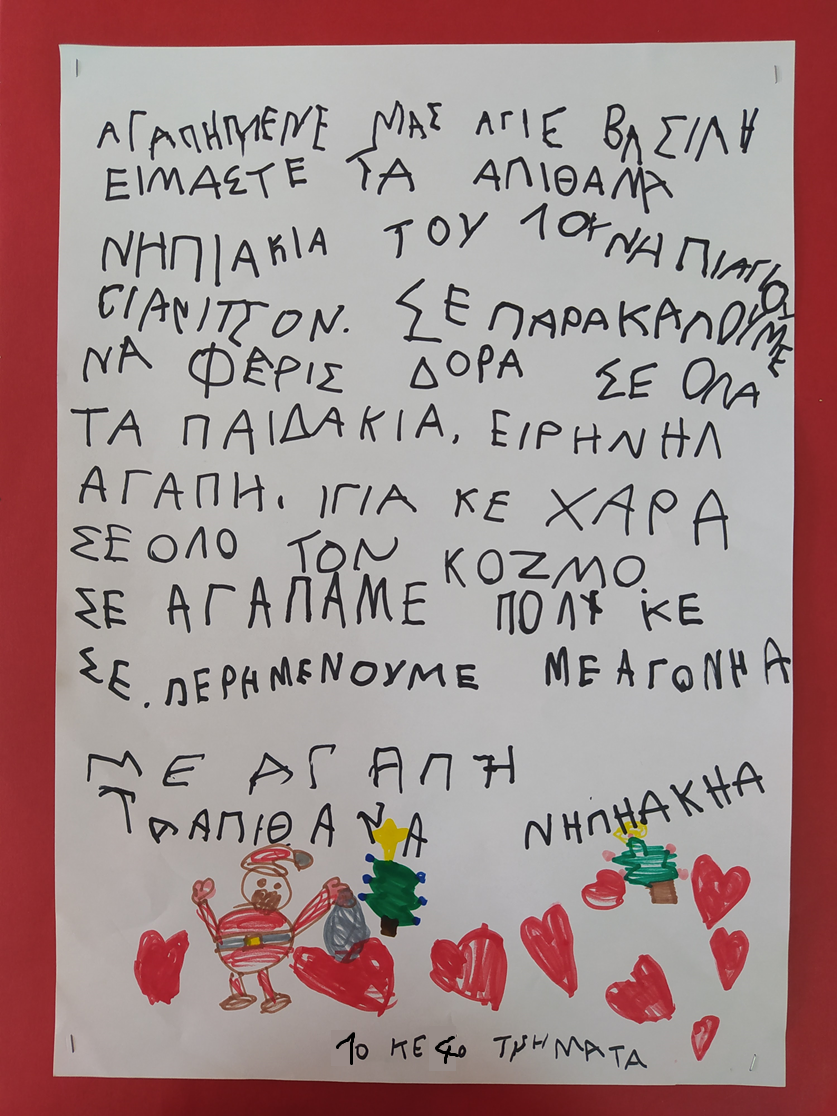 ΑΓΑΠΗΜΕΝΕ ΜΑΣ ΑΓΙΕ ΒΑΣΙΛΗ
ΕΙΜΑΣΤΕ ΤΑ ΑΠΙΘΑΝΑ
ΝΗΠΙΑΚΙΑ ΤΟΥ 1ΟΥ ΝΑΠΙΑΓΙΟΥ
ΓΙΑΝΙΤΣΟΝ. ΣΕ ΠΑΡΑΚΑΛΟΥΜΕ
ΝΑ ΦΕΡΙΣ ΔΟΡΑ ΣΕ ΟΛΑ
ΤΑ ΠΑΙΔΑΚΙΑ, ΕΙΡΗΝΗ
ΑΓΑΠΗ, ΙΓΙΑ ΚΕ ΧΑΡΑ
ΣΕ ΟΛΟ ΤΟΝ ΚΟΖΜΟ
ΣΕ ΑΓΑΠΑΜΕ ΠΟΛΥ ΚΕ
ΣΕ. ΠΕΡΗΜΕΝΟΥΜΕ ΜΕ ΑΓΟΝΗΑ
ΜΕ ΑΓΑΠΗ
ΤΑ ΑΠΙΘΑΝΑ ΝΗΠΗΑΚΗΑ
1ο ΚΕ 4ο ΤΜΗΜΑΤΑ